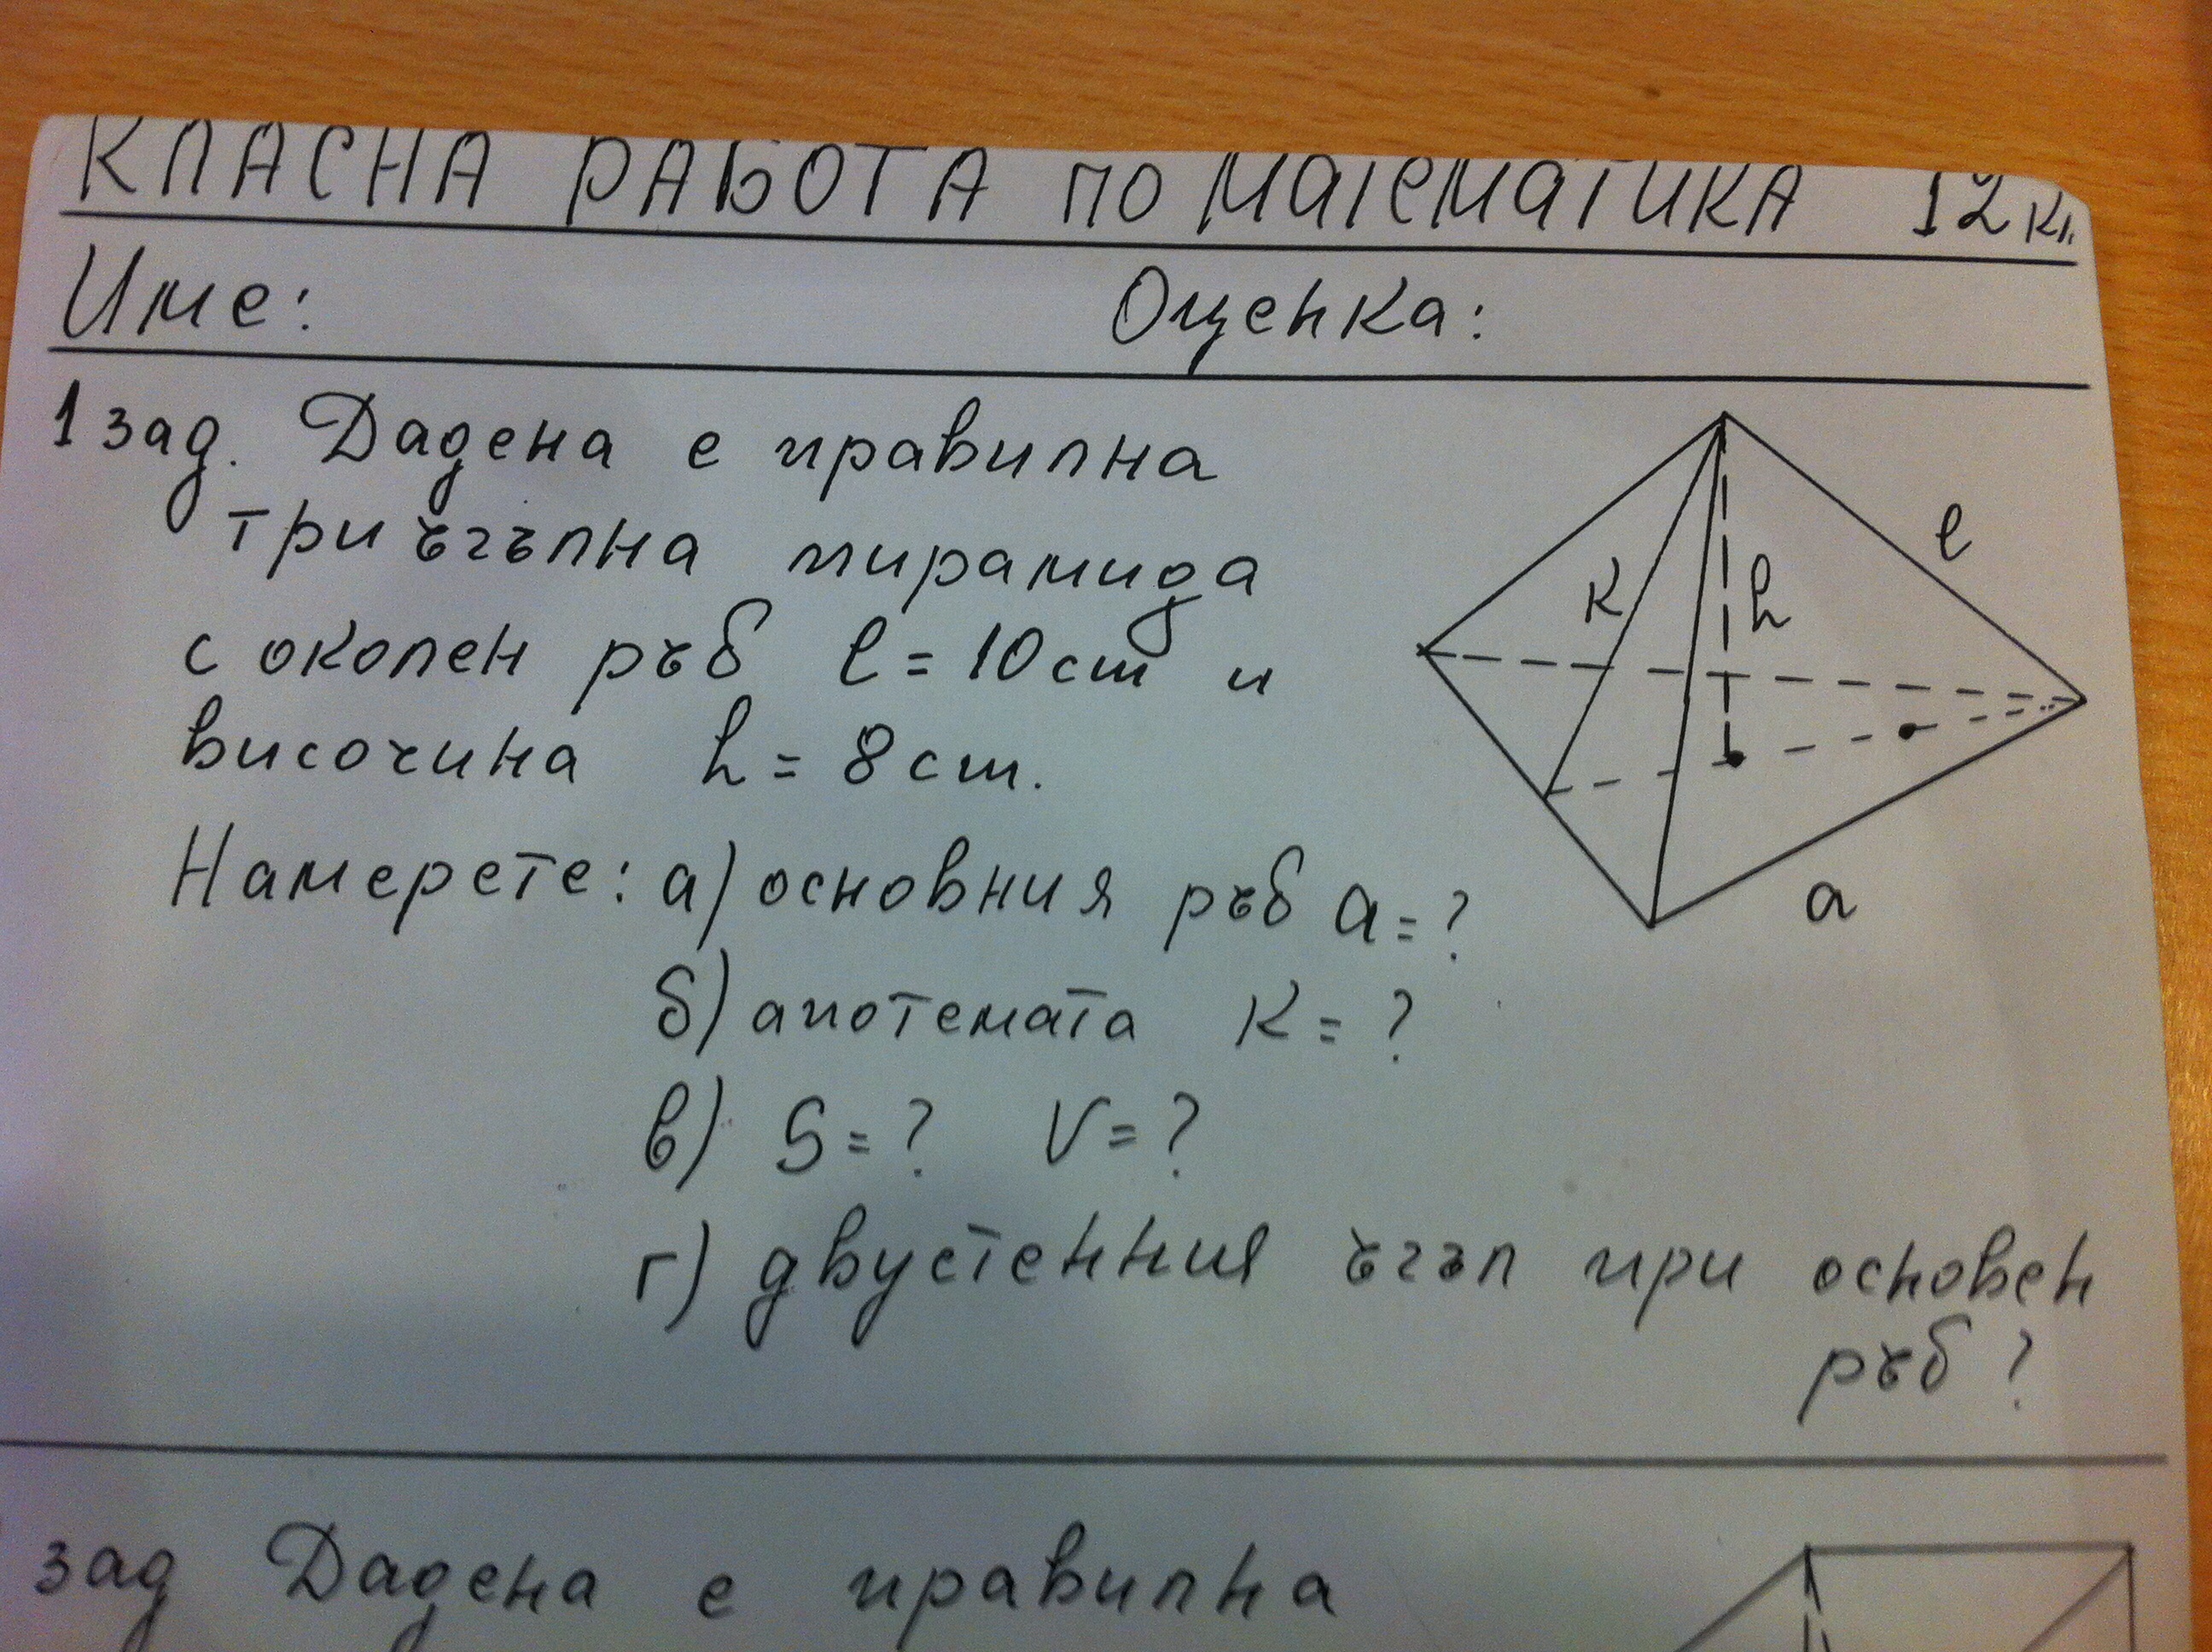 КЛАСНА РАБОТА ПО МАТЕМАТИКА 12 кл.
Име: Оценка:
1 зад. Дадена е правилна
триъгълна пирамида
с околен ръб l = 10 cm и
височина h = 8 cm.
Намерете: а) основния ръб a = ?
б) апотемата K = ?
в) S = ? V = ?
г) двустенния ъгъл при основен
ръб ?
l
K
h
a
зад Дадена е правилна